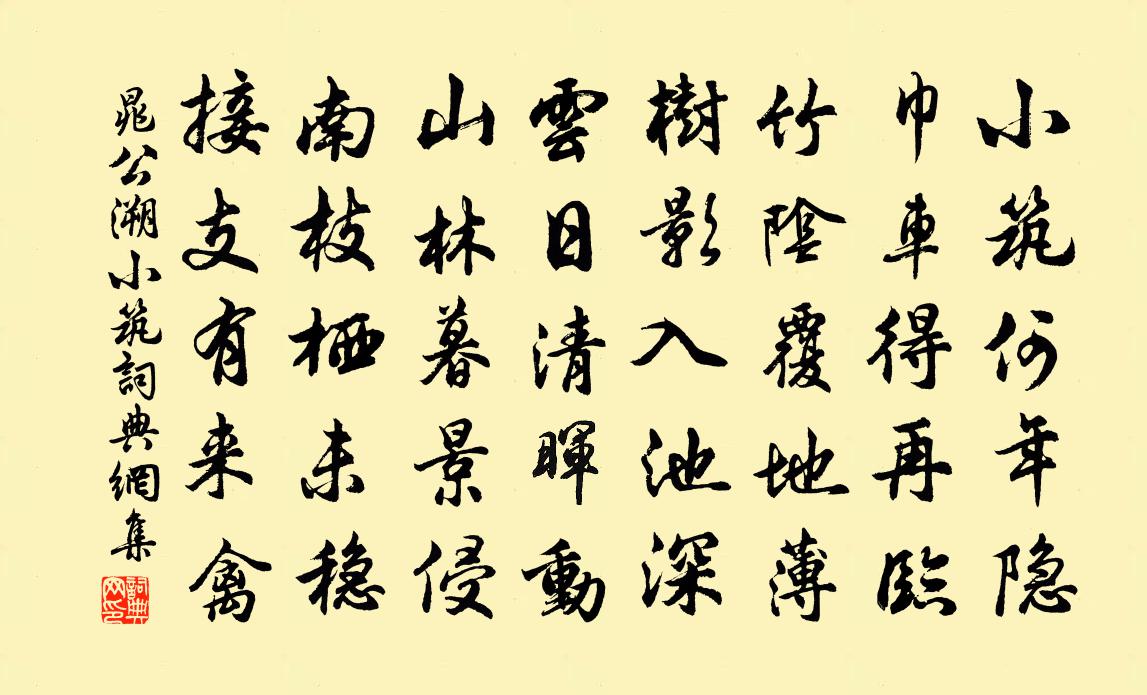 小筑何年隐
巾車得再臨
竹陰覆地薄
樹影入池深
雲日清暉動
山林暮景侵
南枝栖未稳
接支有来禽
晁公溯小筑詞典網集
詞典
网印